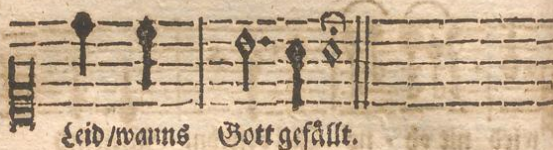 Leid/wanns Gott gefällt.